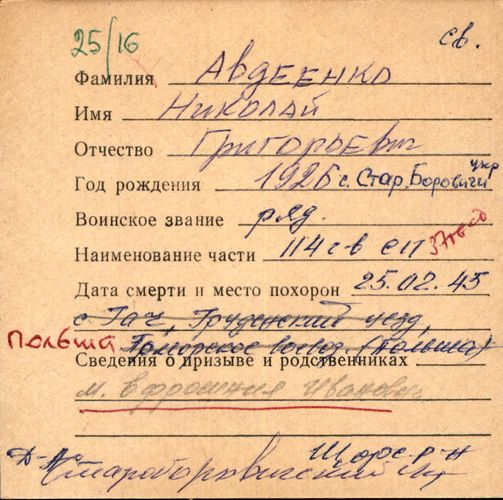 25/16 св.
Фамилия Авдеенко
Имя Николай
Отчество Григорьевич
Год рождения 1926 с. Стар. Боровичи укр
Воинское звание ряд.
Наименование части 114 гв сп
Дата смерти и место похорон 25.02.45
с. Гач, Груденский уезд,
Польша Поморское воевод. (Польша)
Сведения о призыве и родственниках
м. Ефросиния Ивановна
Щорс. р-н
Староборовичский